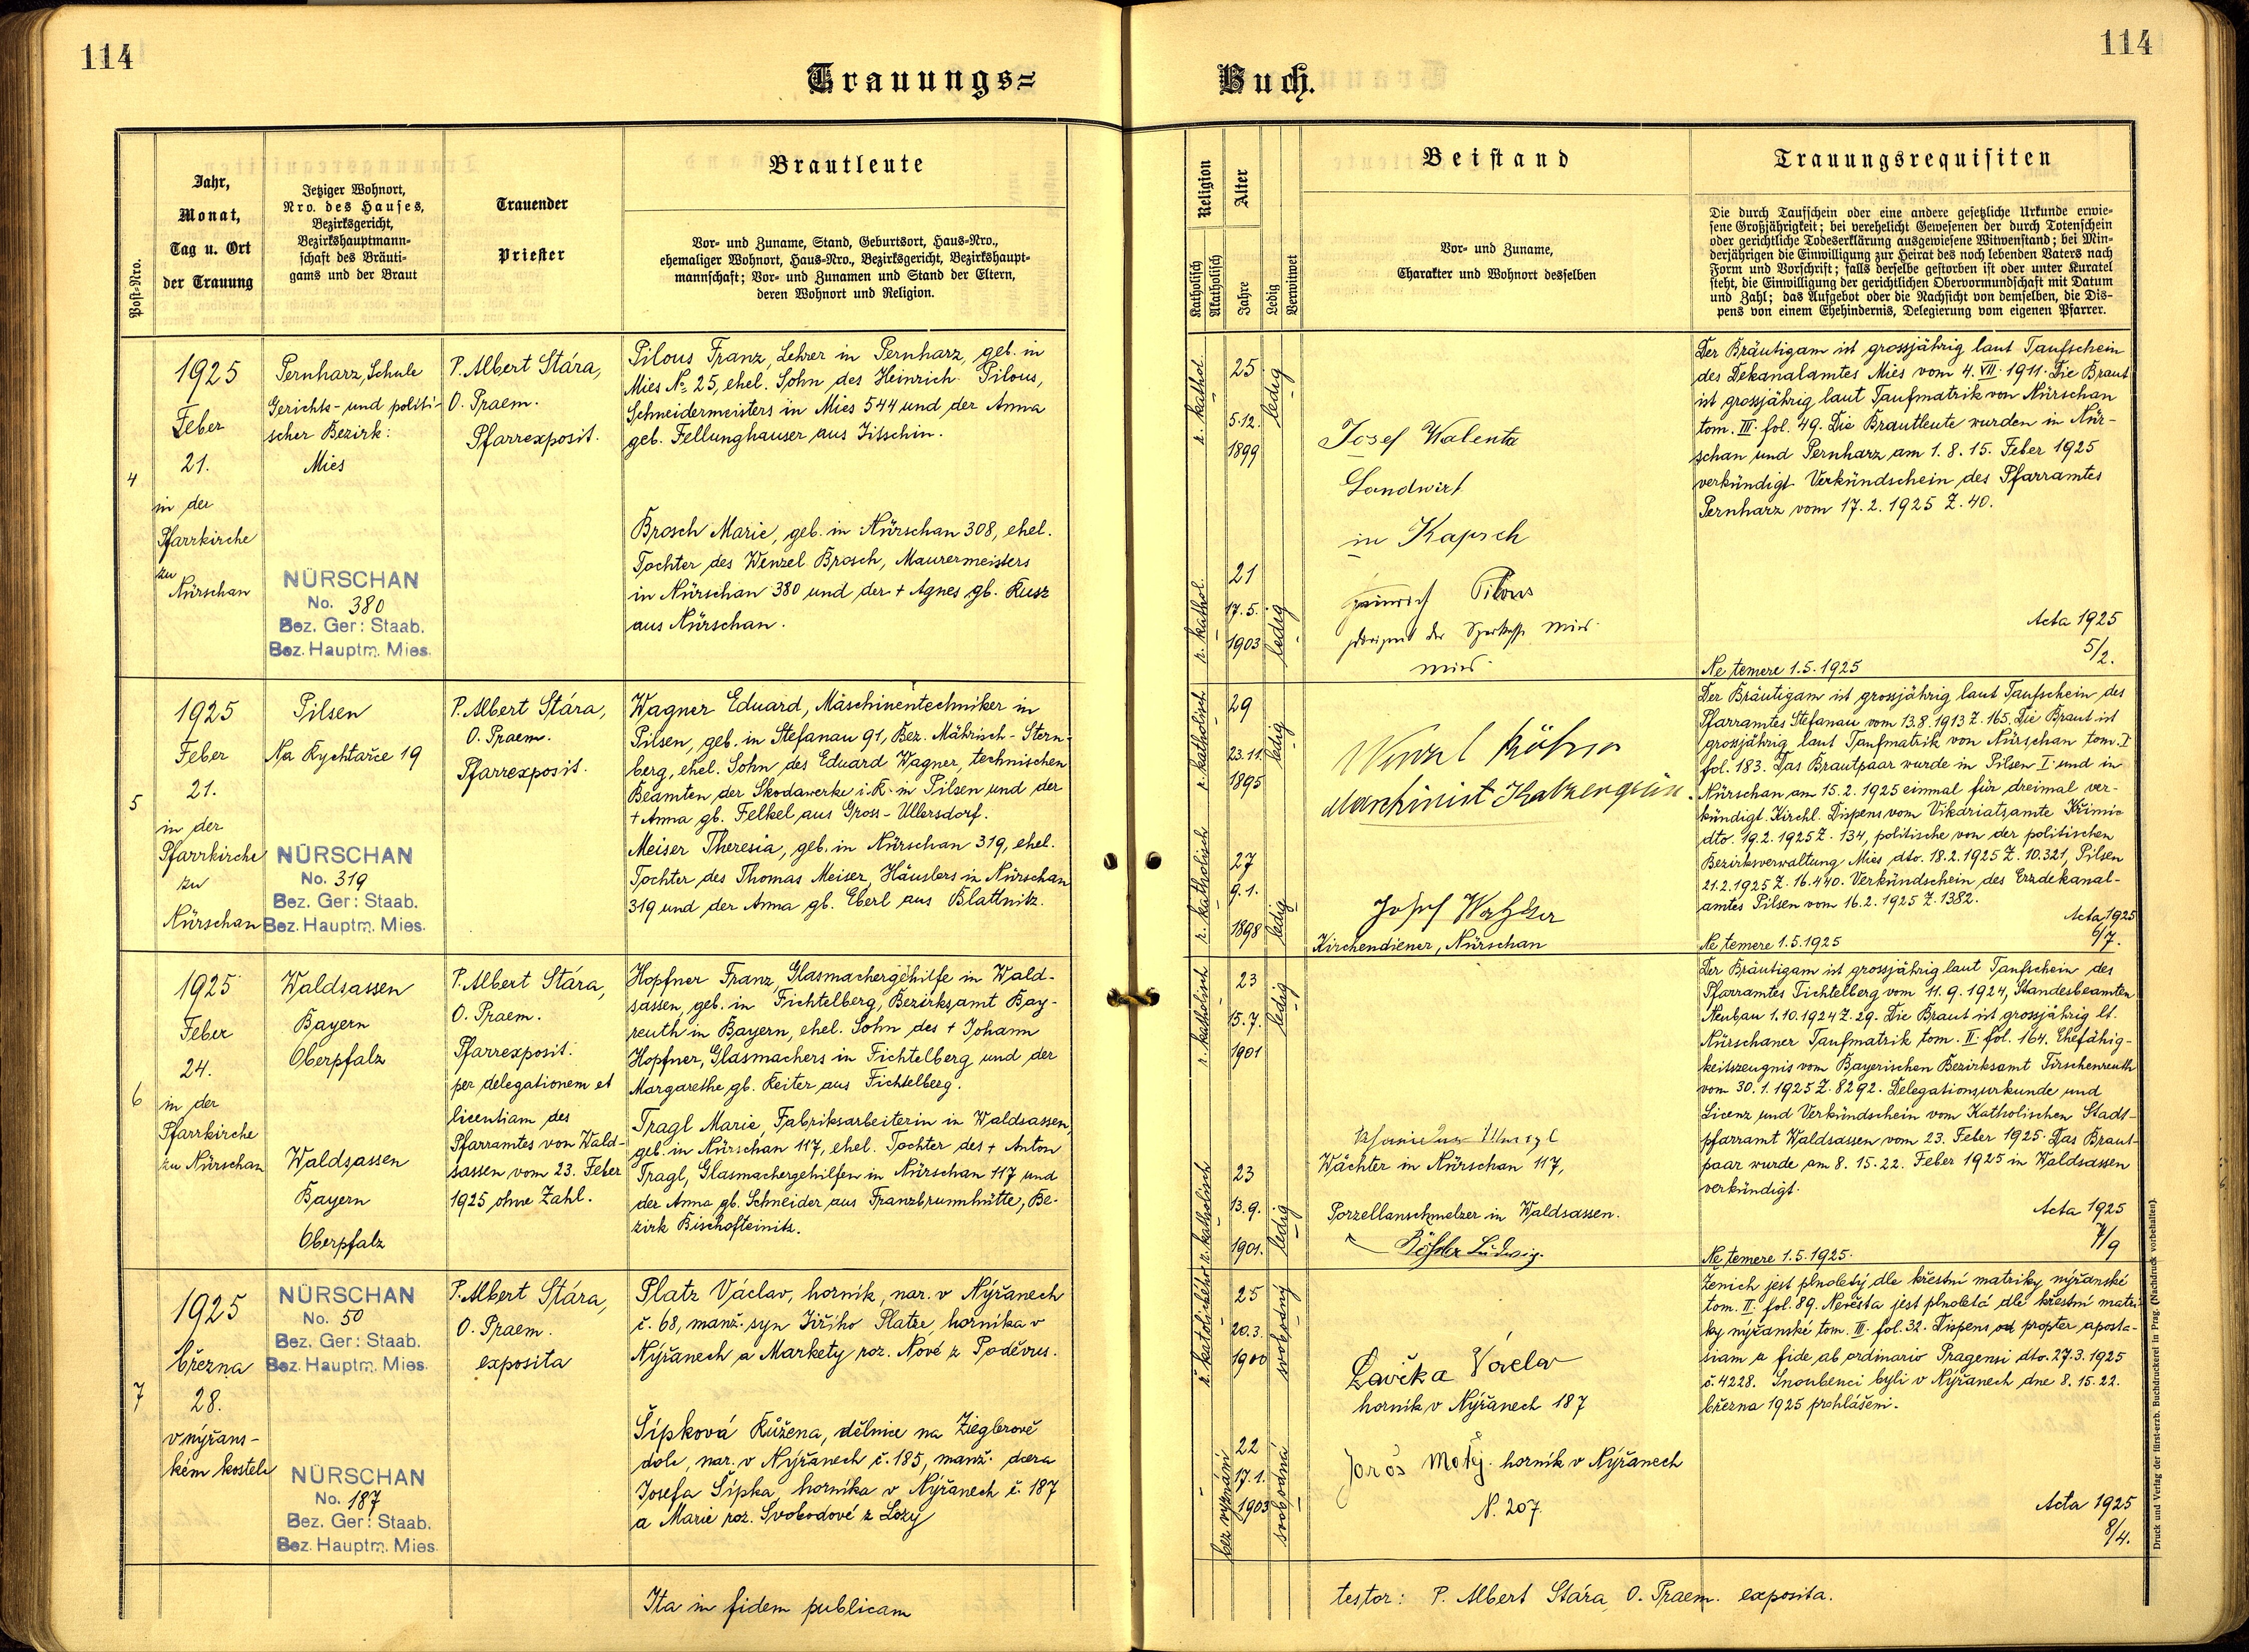 114
114
Trauungs=
Buch.
Post-Nro.
Jahr,
Monat,
Tag u. Ort
der Trauung
Jetziger Wohnort,
Nro. des Hauses,
Bezirksgericht,
Bezirkshauptmann-
schaft des Bräuti-
gams und der Braut
Trauender
Priester
Brautleute
Vor- und Zuname, Stand, Geburtsort, Haus-Nro.,
ehemaliger Wohnort, Haus-Nro., Bezirksgericht, Bezirkshaupt-
mannschaft; Vor- und Zunamen und Stand der Eltern,
deren Wohnort und Religion.
Religion
Katholisch
Akatholisch
Alter
Jahre
Ledig
Verwitwet
Beistand
Vor- und Zuname,
Charakter und Wohnort desselben
Trauungsrequisiten
Die durch Taufschein oder eine andere gesetzliche Urkunde erwie-
sene Großjährigkeit; bei verehelicht Gewesenen der durch Totenschein
oder gerichtliche Todeserklärung ausgewiesene Witwenstand; bei Min-
derjährigen die Einwilligung zur Heirat des noch lebenden Vaters nach
Form und Vorschrift; falls derselbe gestorben ist oder unter Kuratel
steht, die Einwilligung der gerichtlichen Obervormundschaft mit Datum
und Zahl; das Aufgebot oder die Nachsicht von demselben, die Dis-
pens von einem Ehehindernis, Delegierung vom eigenen Pfarrer.
4
1925
Feber
21.
in der
Pfarrkirche
zu
Nürschan
Pernharz, Schule
Gerichts- und politi-
scher Bezirk:
Mies
NÜRSCHAN
No. 380
Bez. Ger: Staab.
Bez. Hauptm. Mies.
P. Albert Stára,
O. Praem.
Pfarrexposit.
Pilous Franz, Lehrer in Pernharz, geb. in
Mies No 25, ehel. Sohn des Heinrich Pilous,
Schneidermeisters in Mies 544 und der Anna
geb. Fellunghauser aus Jitschin.
Brosch Marie, geb. in Nürschan 308, ehel.
Tochter des Wenzel Brosch, Maurermeisters
in Nürschan 380 und der + Agnes gb. Kusz
aus Nürschan.
r. kathol.
25
5.12.
1899
ledig
r. kathol.
21
17.5.
1903
ledig
Josef Walenta
Landwirt
in Kapsch
Heinrich Pilous
der Sparkasse Mies
Mies.
Der Bräutigam ist grossjährig laut Taufschein
des Dekanalamtes Mies vom 4. VII. 1911. Die Braut
ist grossjährig laut Taufmatrik von Nürschan
tom. III. fol. 49. Die Brautleute wurden in Nür-
schan und Pernharz am 1. 8. 15. Feber 1925
verkündigt. Verkündschein des Pfarramtes
Pernharz vom 17. 2. 1925 Z. 40.
Acta 1925
5/2.
Ne temere 1.5.1925
5
1925
Feber
21.
in der
Pfarrkirche
zu
Nürschan
Pilsen
Na Rychtařce 19
NÜRSCHAN
No. 319
Bez. Ger: Staab.
Bez. Hauptm. Mies.
P. Albert Stára,
O. Praem.
Pfarrexposit.
Wagner Eduard, Maschinentechniker in
Pilsen, geb. in Stefanau 91, Bez. Mährisch-Stern-
berg, ehel. Sohn des Eduard Wagner, technischen
Beamten der Skodawerke i. R. in Pilsen und der
+ Anna gb. Felkel aus Gross-Ullersdorf.
Meiser Theresia, geb. in Nürschan 319, ehel.
Tochter des Thomas Meiser, Häuslers in Nürschan
319 und der Anna gb. Eberl aus Blattnitz.
r. katholisch
29
23.11.
1895
ledig
r. katholisch
27
9.1.
1898
ledig
Maschinist Katzengrün.
Josef
Kirchendiener, Nürschan
Der Bräutigam ist grossjährig laut Taufschein des
Pfarramtes Stefanau vom 13.8.1913 Z. 165. Die Braut ist
grossjährig laut Taufmatrik von Nürschan tom. I
fol. 183. Das Brautpaar wurde in Pilsen I. und in
Nürschan am 15.2.1925 einmal für dreimal ver-
kündigt. Kirchl. Dispens vom Vikariatsamte Křimic
dto. 19.2.1925 Z. 134, politische von der politischen
Bezirksverwaltung Mies dto. 18.2.1925 Z. 10.321, Pilsen
21.2.1925 Z. 16.440. Verkündschein des Erzdekanal-
amtes Pilsen vom 16.2.1925 Z. 1382.
Acta 1925
6/7.
Ne temere 1.5.1925
6
1925
Feber
24.
in der
Pfarrkirche
zu Nürschan
Waldsassen
Bayern
Oberpfalz
Waldsassen
Bayern
Oberpfalz
P. Albert Stára,
O. Praem.
Pfarrexposit.
per delegationem et
licentiam des
Pfarramtes von Wald-
sassen vom 23. Feber
1925 ohne Zahl.
Hopfner Franz, Glasmachergehilfe in Wald-
sassen, geb. in Fichtelberg, Bezirksamt Bay-
reuth in Bayern, ehel. Sohn des + Johann
Hopfner, Glasmachers in Fichtelberg und der
Margarethe gb. Reiter aus Fichtelberg.
Tragl Marie, Fabriksarbeiterin in Waldsassen,
geb. in Nürschan 117, ehel. Tochter des + Anton
Tragl, Glasmachergehilfen in Nürschan 117 und
der Anna gb. Schneider aus Franzbrunnhütte, Be-
zirk Bischofteinitz.
r. katholisch
23
15.7.
1901
ledig
r. katholisch
23
13.9.
1901.
ledig
Wächter in Nürschan 117,
Porzellanschmelzer in Waldsassen.
Ludwig.
Der Bräutigam ist grossjährig laut Taufschein des
Pfarramtes Fichtelberg vom 11. 9. 1924, Standesbeamten
Neubau 1.10.1924 Z. 29. Die Braut ist grossjährig lt.
Nürschaner Taufmatrik tom. II. fol. 164. Ehefähig-
keitszeugnis vom Bayerischen Bezirksamt Tirschenreuth
vom 30. 1. 1925 Z. 8292. Delegationsurkunde und
Licenz und Verkündschein vom Katholischen Stadt-
pfarramt Waldsassen vom 23. Feber 1925. Das Braut-
paar wurde am 8. 15. 22. Feber 1925 in Waldsassen
verkündigt.
Acta 1925
7/9
Ne temere 1.5.1925.
7
1925
března
28.
v nýřans-
kém kostele
NÜRSCHAN
No. 50
Bez. Ger: Staab.
Bez. Hauptm. Mies.
NÜRSCHAN
No. 187
Bez. Ger: Staab.
Bez. Hauptm. Mies.
P. Albert Stára,
O. Praem.
exposita
Platz Václav, horník, nar. v Nýřanech
č. 68, manž. syn Jiřího Platze, horníka v
Nýřanech a Markety roz. Nové z Poděvus.
Šípková Růžena, dělnice na Zieglerově
dole, nar. v Nýřanech č. 185, manž. dcera
Josefa Šípka, horníka v Nýřanech č. 187
a Marie roz. Svobodové z Lozy
ř. katolického
25
20.3.
1900
svobodný
bez vyznání
22
17.1.
1903
svobodná
Lavička Václav
horník v Nýřanech 187
Jaroš Matěj. horník v Nýřanech
N. 207.
Ženich jest plnoletý dle křestní matriky nýřanské
tom. II. fol. 89. Nevěsta jest plnoletá dle křestní matri-
ky nýřanské tom. III. fol. 32. Dispens od propter aposta-
siam a fide ab ordinario Pragensi dto. 27.3.1925
č. 4228. Snoubenci byli v Nýřanech dne 8. 15. 22.
března 1925 prohlášeni.
Acta 1925
8/4.
Ita in fidem publicam
testor: P. Albert Stára, O. Praem. exposita.
Druck und Verlag der fürst-erzb. Buchdruckerei in Prag. (Nachdruck vorbehalten).